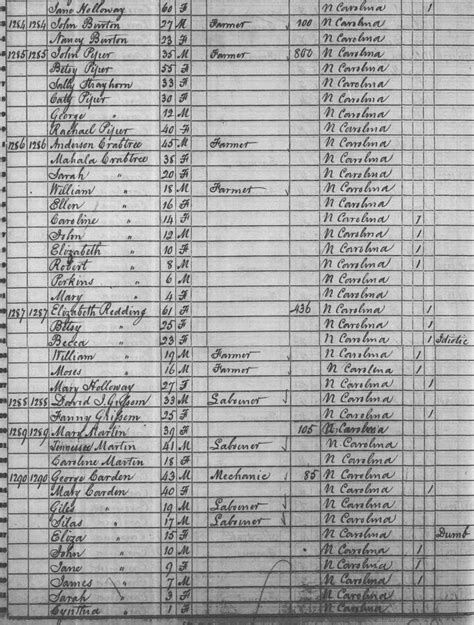 Jane Holloway 60 F N Carolina 1
1284 1284 John Burton 27 M Farmer 100 N Carolina
Nancy Burton 23 F N Carolina
1285 1285 John Piper 35 M Farmer 800 N Carolina
Betsy Piper 55 F N Carolina
Sally Strayhorn 33 F N Carolina
Caty Piper 30 F N Carolina
George " 12 M N Carolina
Rachael Piper 40 F N Carolina
1286 1286 Anderson Crabtree 45 M Farmer N Carolina
Mahala Crabtree 38 F N Carolina
Sarah " 20 F N Carolina
William " 18 M Farmer N Carolina
Ellen " 16 F N Carolina
Caroline " 14 F N Carolina 1
John " 12 M N Carolina 1
Elizabeth " 10 F N Carolina 1
Robert " 8 M N Carolina 1
Perkins " 6 M N Carolina
Mary " 4 F N Carolina
1287 1287 Elizabeth Redding 61 F 436 N Carolina 1
Betsy " 25 F N Carolina 1
Becca " 23 F N Carolina 1 Idiotic
William " 19 M Farmer N Carolina
Moses " 16 M Farmer N Carolina 1
Mary Holloway 27 F N Carolina 1
1288 1288 David J. Gibson 33 M Labourer N Carolina
Fanny Gibson 25 F N Carolina 1
1289 1289 Mary Martin 39 F 105 N Carolina
Tennessee Martin 41 M Labourer N Carolina
Caroline Martin 18 F N Carolina
1290 1290 George Carden 43 M Mechanic 85 N Carolina
Mary Carden 40 F N Carolina 1
Giles " 19 M Labourer N Carolina
Silas " 17 M Labourer N Carolina
Eliza " 15 F N Carolina Dumb
John " 10 M N Carolina 1
Jane " 9 F N Carolina 1
James " 7 M N Carolina 1
Sarah " 3 F N Carolina
Cynthia " 1 F N Carolina